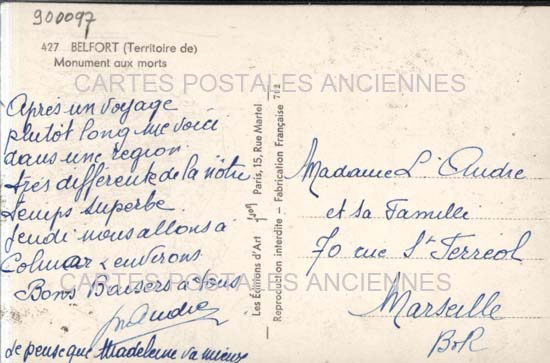 900097
427 BELFORT (Territoire de)
Monument aux morts
CARTES POSTALES ANCIENNES
Après un voyage
plutôt long me voici
dans une region
très différente de la nôtre
temps superbe
Jeudi nous allons à
Colmar & environs
Bons Baisers à tous
André
Je pense que Madeleine va mieux
Les Editions d'Art Paris, 15, Rue Martel
Reproduction interdite - Fabrication Française 712
Madame L. André
et sa Famille
70 rue St Ferreol
Marseille
BdR
CARTES POSTALES ANCIENNES